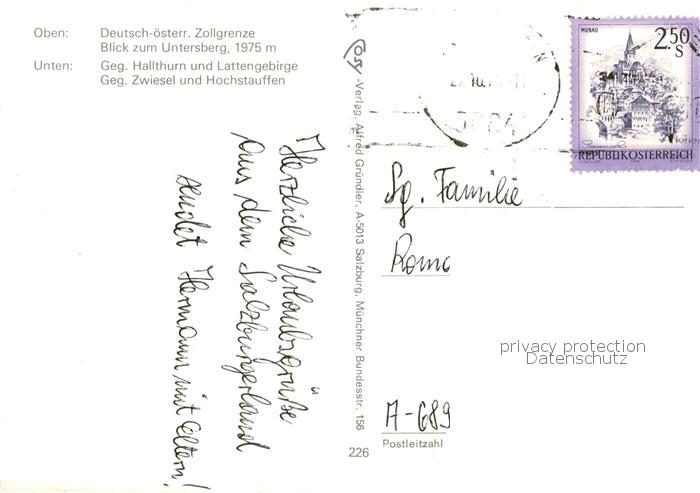 Oben: Deutsch-österr. Zollgrenze
Blick zum Untersberg, 1975 m
Unten: Geg. Hallthurn und Lattengebirge
Geg. Zwiesel und Hochstauffen
Herzliche Urlaubsgrüße
aus dem Salzburgerland
sendet Hermann mit Eltern!
Cosy-Verlag, Alfred Gründler, A-5013 Salzburg, Münchner Bundesstr. 156
226
MURAU
2.50
S
REPUBLIK ÖSTERREICH
Sg. Familie
Roma
privacy protection
Datenschutz
A-689
Postleitzahl